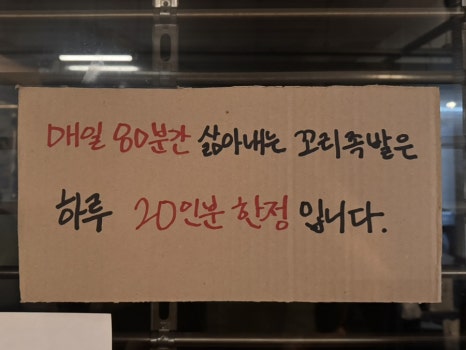 매일 80분간 삶아내는 꼬리족발은
하루 20인분 한정 입니다.